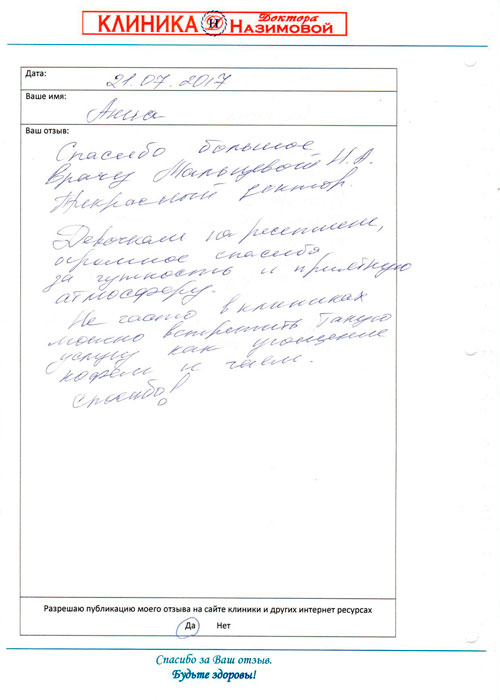 КЛИНИКА Доктора Назимовой
Дата: 21.07.2017
Ваше имя:
Анна
Ваш отзыв:
Спасибо большое
врачу Мальцевой Н.А.
Прекрасный доктор.
Девочкам на ресепшене,
огромное спасибо
за чуткость и приятную
атмосферу.
Не часто в клиниках
можно встретить такую
услугу как угощение
кофем и чаем.
Спасибо!
Разрешаю публикацию моего отзыва на сайте клиники и других интернет ресурсах
Да Нет
Спасибо за Ваш отзыв.
Будьте здоровы!